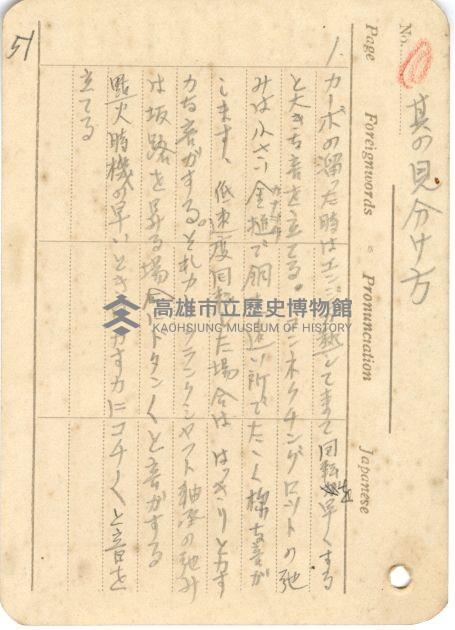 No.
Page
Foreignwords
Pronunciation
Japanese
51
其の見分け方
1. カーボの溜った時はエンジンが熱して来て回転を早くする
と大きな音を立てる。コンネクチングロットの弛
みは小さい金槌で銅を遠い所でたゝく様な音が
します、低速度回転した場合ははっきりとカす
カな音がする。それカらクランクシャフト軸承の弛み
は坂路を昇る場合ドタンドタンと音がする
點火時機の早いときはかすカにコチコチと音を
立てる
高雄市立歷史博物館
KAOHSIUNG MUSEUM OF HISTORY